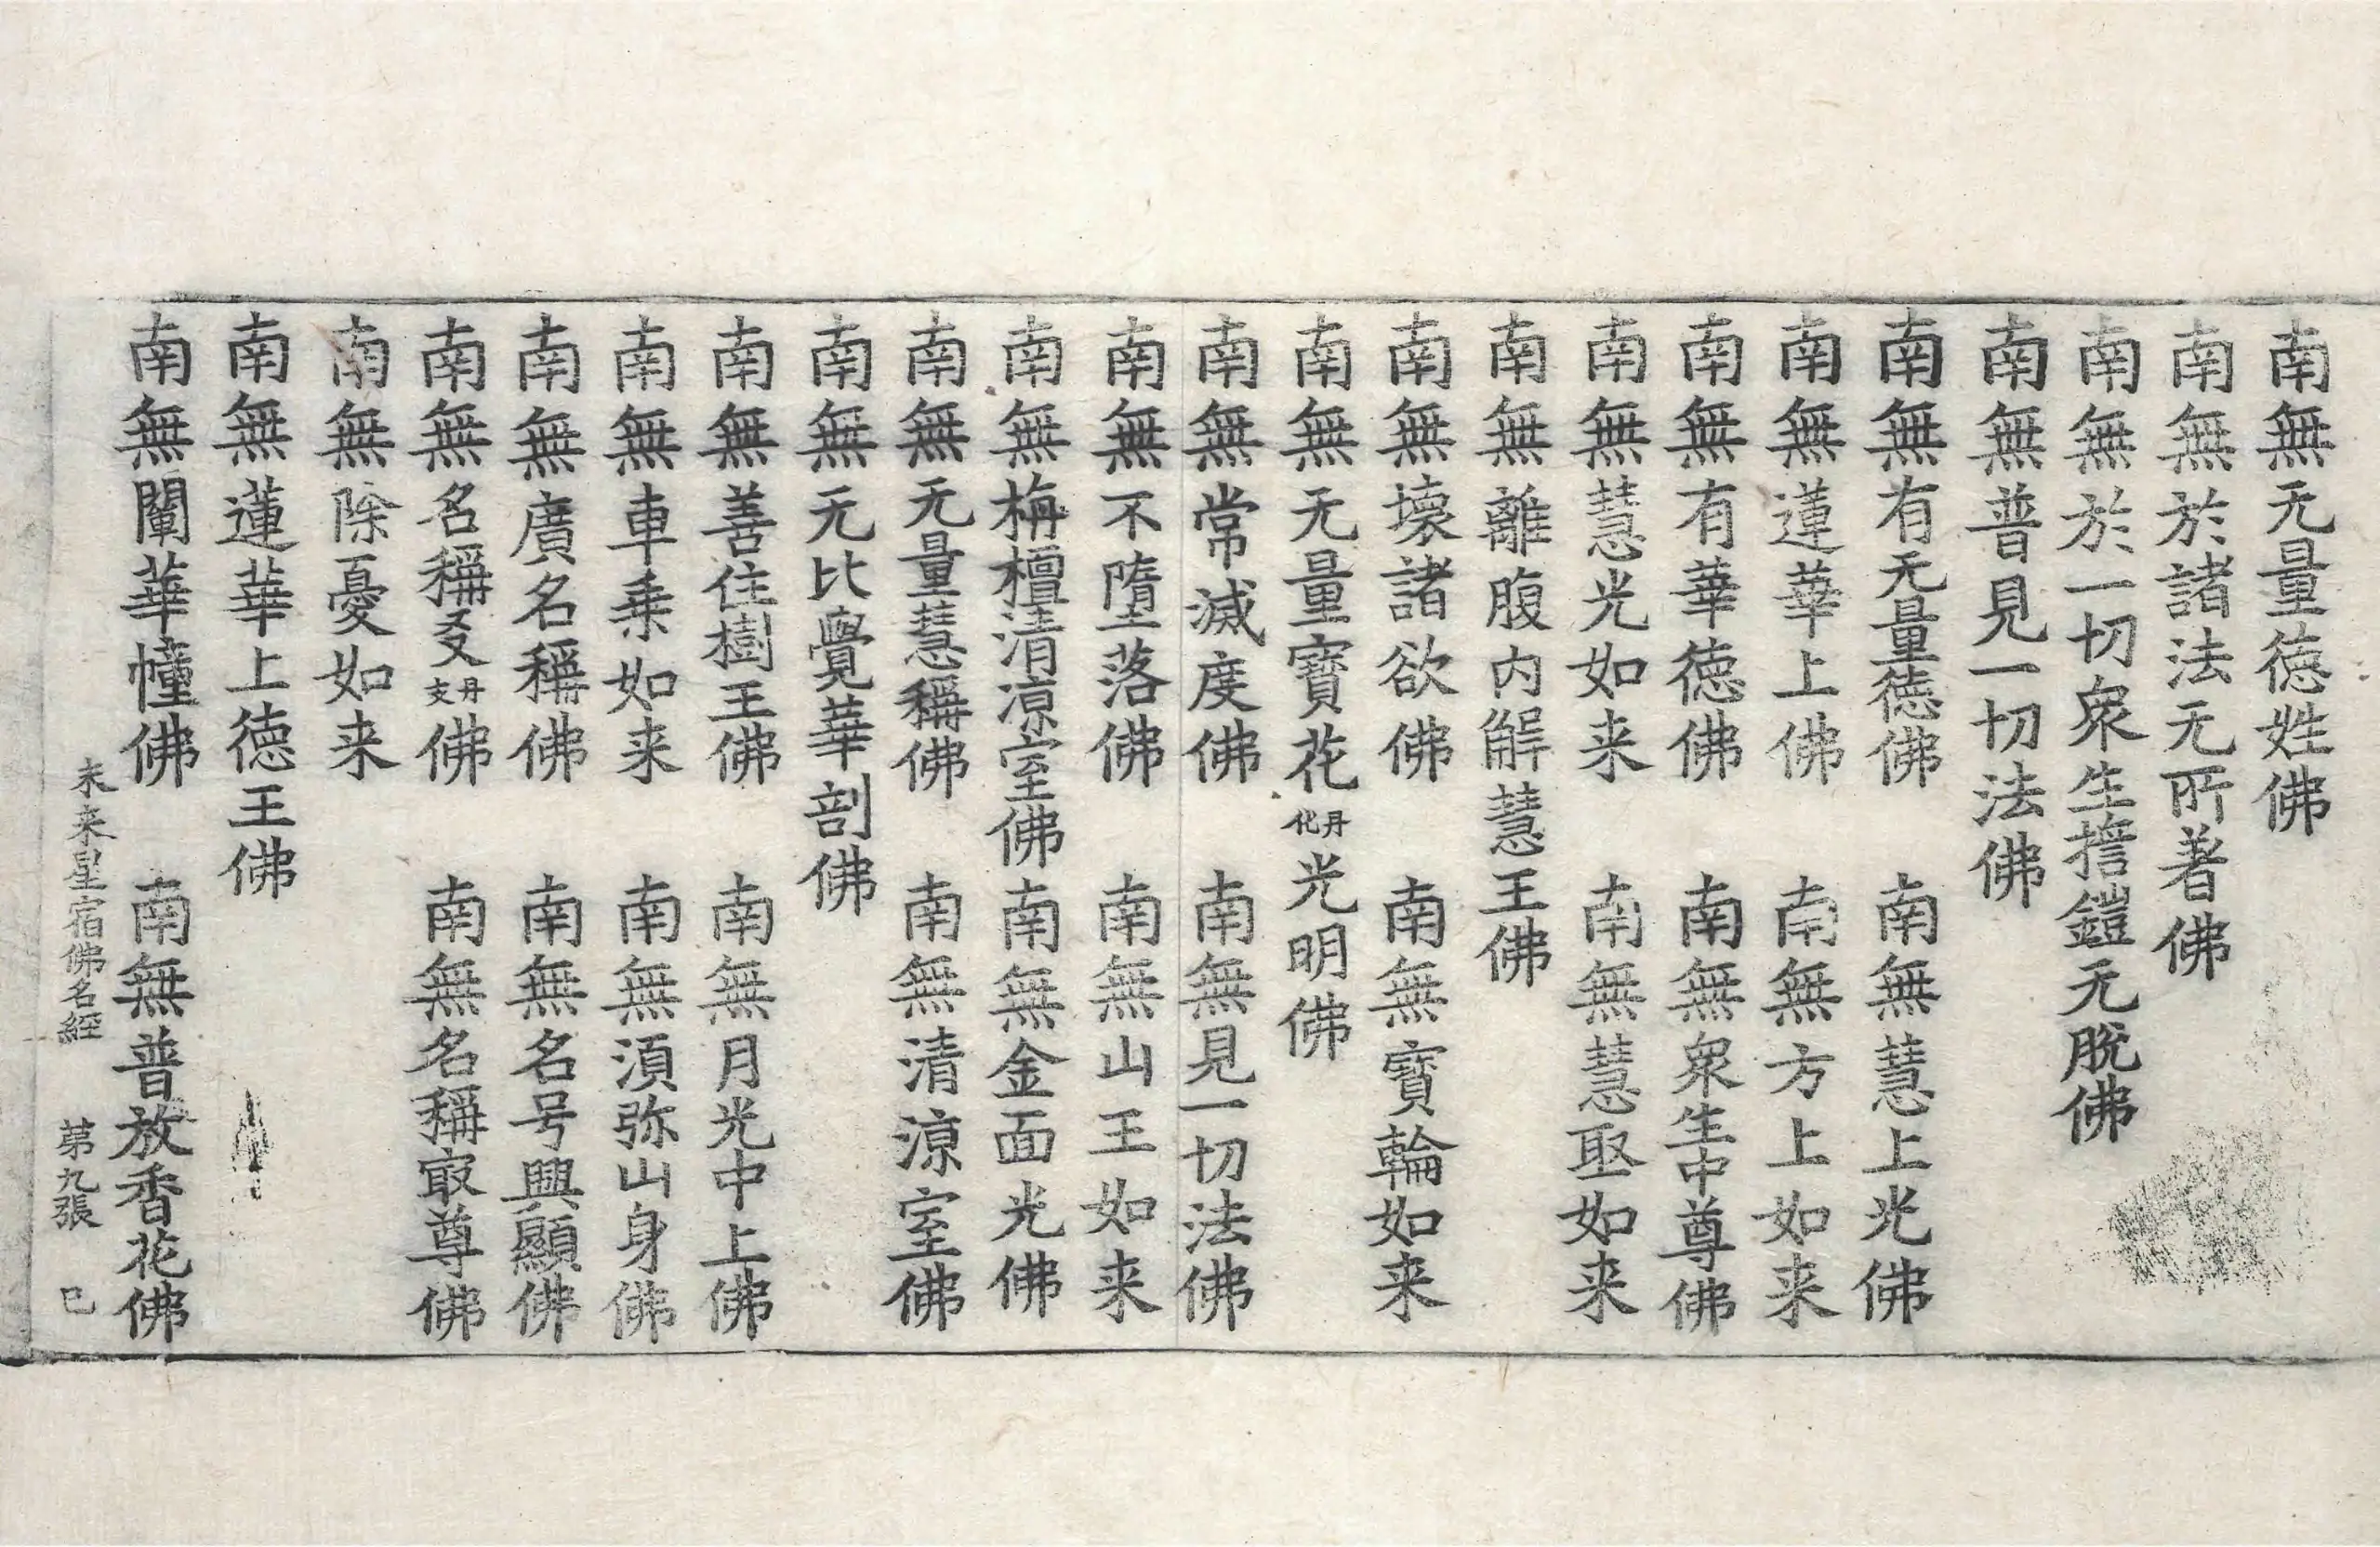 南無无量德姓佛
南無於諸法无所著佛
南無於一切眾生擔鎧无脫佛
南無普見一切法佛
南無有无量德佛　南無慧上光佛
南無蓮華上佛　南無方上如来
南無有華德佛　南無眾生中尊佛
南無慧光如来　南無慧聚如来
南無離腹内解慧王佛
南無壞諸欲佛　南無寶輪如来
南無无量寶花丹化光明佛
南無常滅度佛　南無見一切法佛
南無不墮落佛　南無山王如来
南無栴檀清涼室佛南無金面光佛
南無无量慧稱佛　南無清涼室佛
南無无比覺華剖佛
南無善住樹王佛　南無月光中上佛
南無車乗如来　南無須弥山身佛
南無廣名稱佛　南無名号興顯佛
南無名稱叐丹支佛　南無名稱㝡尊佛
南無除憂如来
南無蓮華上德王佛
南無闡華幢佛　南無普放香花佛
未来星宿佛名經　第九張　巳